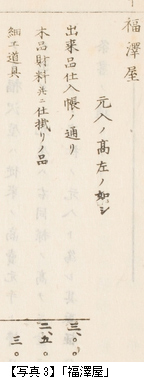 福澤屋
元入ノ高左ノ如シ
出来品仕入帳ノ通リ
三、〇〇
木品財料并ニ仕掛リノ品
二、五〇
細工道具
三〇
【写真3】「福澤屋」